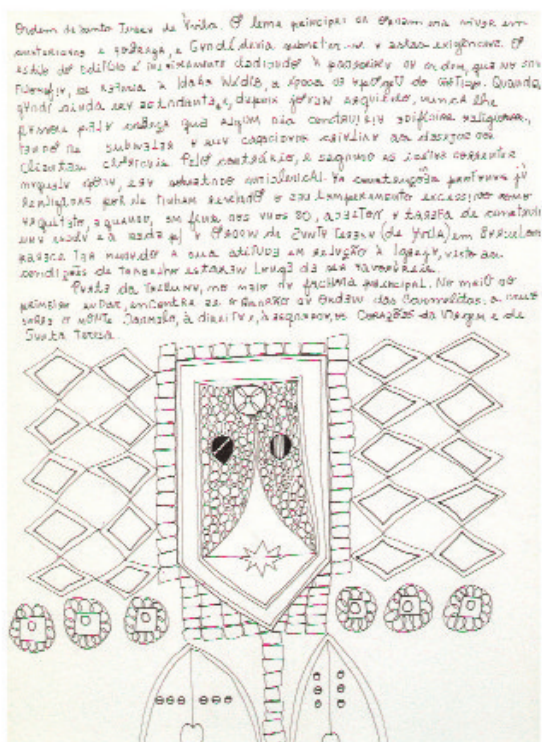 Ordem de Santo Teresa de Ávila. O lema principal da Ordem era viver em
e pobreza, e Gaudí devia submeter-se a estas exigências. O
estilo do edifício é inteiramente dedicado à da ordem, que na sua
se à Idade Média, a época do apogeu do gótico. Quando
Gaudí ainda era estudante e, depois jovem arquiteto, nunca lhe
passou pela cabeça que algum dia construiria edifícios religiosos,
tendo de submeter a sua capacidade criativa ao desejo dos
Pelo contrário, e segundo as
naquela era As construções já
realizadas por ele tinham revelado o seu temperamento excessivo como
arquiteto, e quando, em fins dos anos 80, aceitou a tarefa de construir
uma escola e a sede p/ a Ordem de Santa Teresa (de Ávila) em Barcelona
parece ter mudado a sua atitude em relação à Igreja, visto as
condições de trabalho estarem longe de ser favoráveis.
Parte da Tribuna, no meio da fachada principal. No meio do
primeiro andar, encontra-se o Brasão da Ordem das Carmelitas: a cruz
sobre o Monte Carmelo, à direita, à esquerda, os Corações da Virgem e de
Santa Teresa.